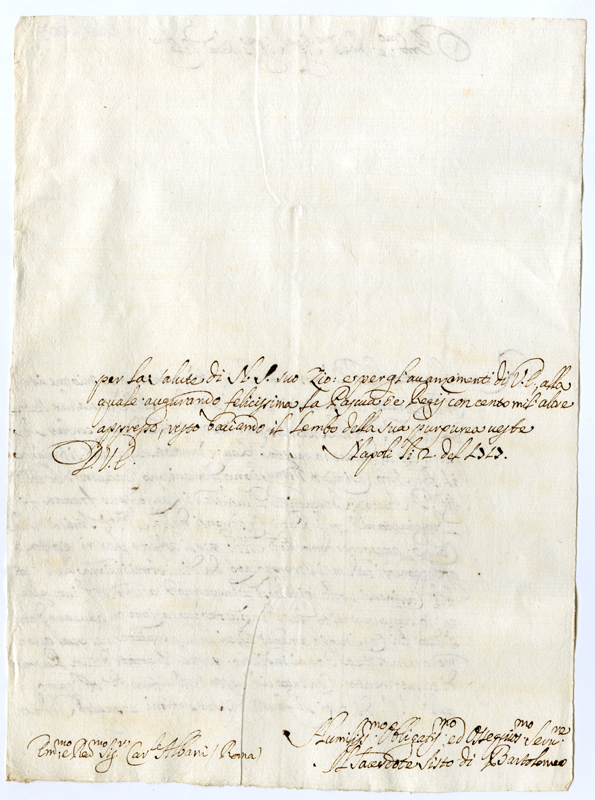 per la salute di N. S. suo Zio: e per gl'avanzamenti di V. E., alla
quale augurando felicissima la Pascua de Regij con cento mil'altre
appresso, resto baciamo il lembo della sua purpurea veste
D. V. E. Napoli li 2. del 1717.
Humiliss.mo e Obligatiss.mo ed Osseq.mo Serv.re
Em.mo e Red.mo Sig.r Car.le Albani (Roma)
Il Sacerdote Sisto di Bartolomeo